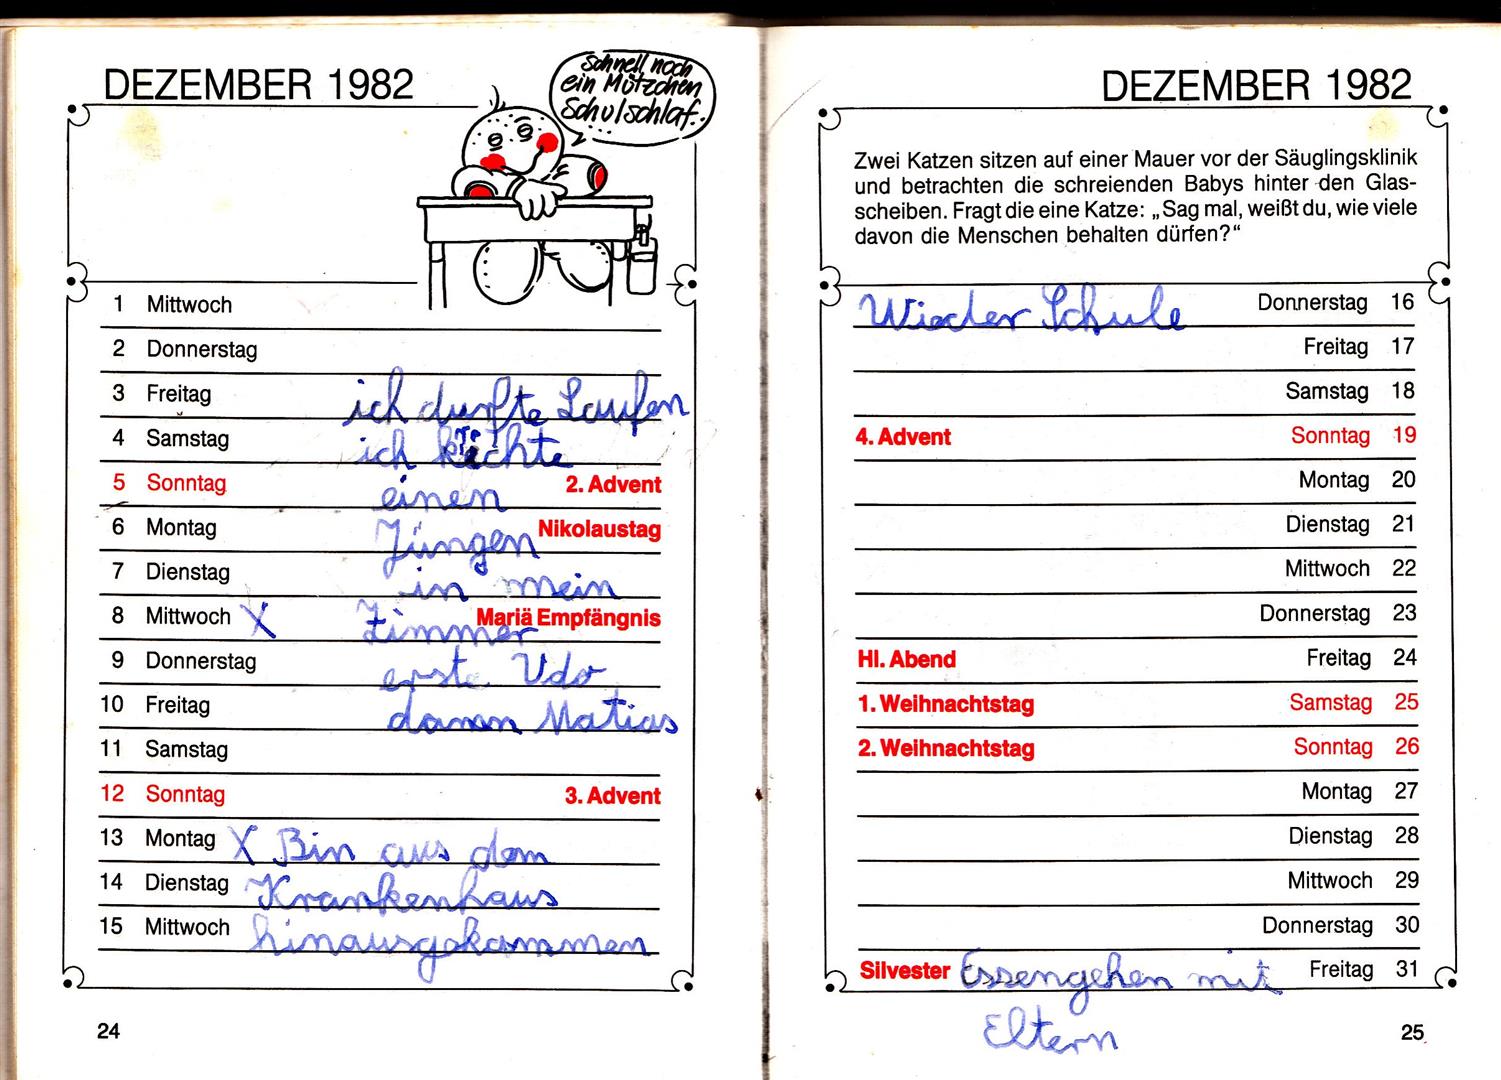 DEZEMBER 1982
Schnell noch
ein Mützchen
Schulschlaf..
1 Mittwoch
2 Donnerstag
3 Freitag ich durfte Laufen
4 Samstag ich kichte
5 Sonntag einen 2. Advent
6 Montag Jüngen Nikolaustag
7 Dienstag in mein
8 Mittwoch X Zimmer Mariä Empfängnis
9 Donnerstag erste Udo
10 Freitag dann Matias
11 Samstag
12 Sonntag 3. Advent
13 Montag X Bin aus dem
14 Dienstag Krankenhaus
15 Mittwoch hinausgekommen
24
DEZEMBER 1982
Zwei Katzen sitzen auf einer Mauer vor der Säuglingsklinik
und betrachten die schreienden Babys hinter den Glas-
scheiben. Fragt die eine Katze: „Sag mal, weißt du, wie viele
davon die Menschen behalten dürfen?“
Wieder Schule Donnerstag 16
Freitag 17
Samstag 18
4. Advent Sonntag 19
Montag 20
Dienstag 21
Mittwoch 22
Donnerstag 23
Hl. Abend Freitag 24
1. Weihnachtstag Samstag 25
2. Weihnachtstag Sonntag 26
Montag 27
Dienstag 28
Mittwoch 29
Donnerstag 30
Silvester Essengehen mit Freitag 31
Eltern
25